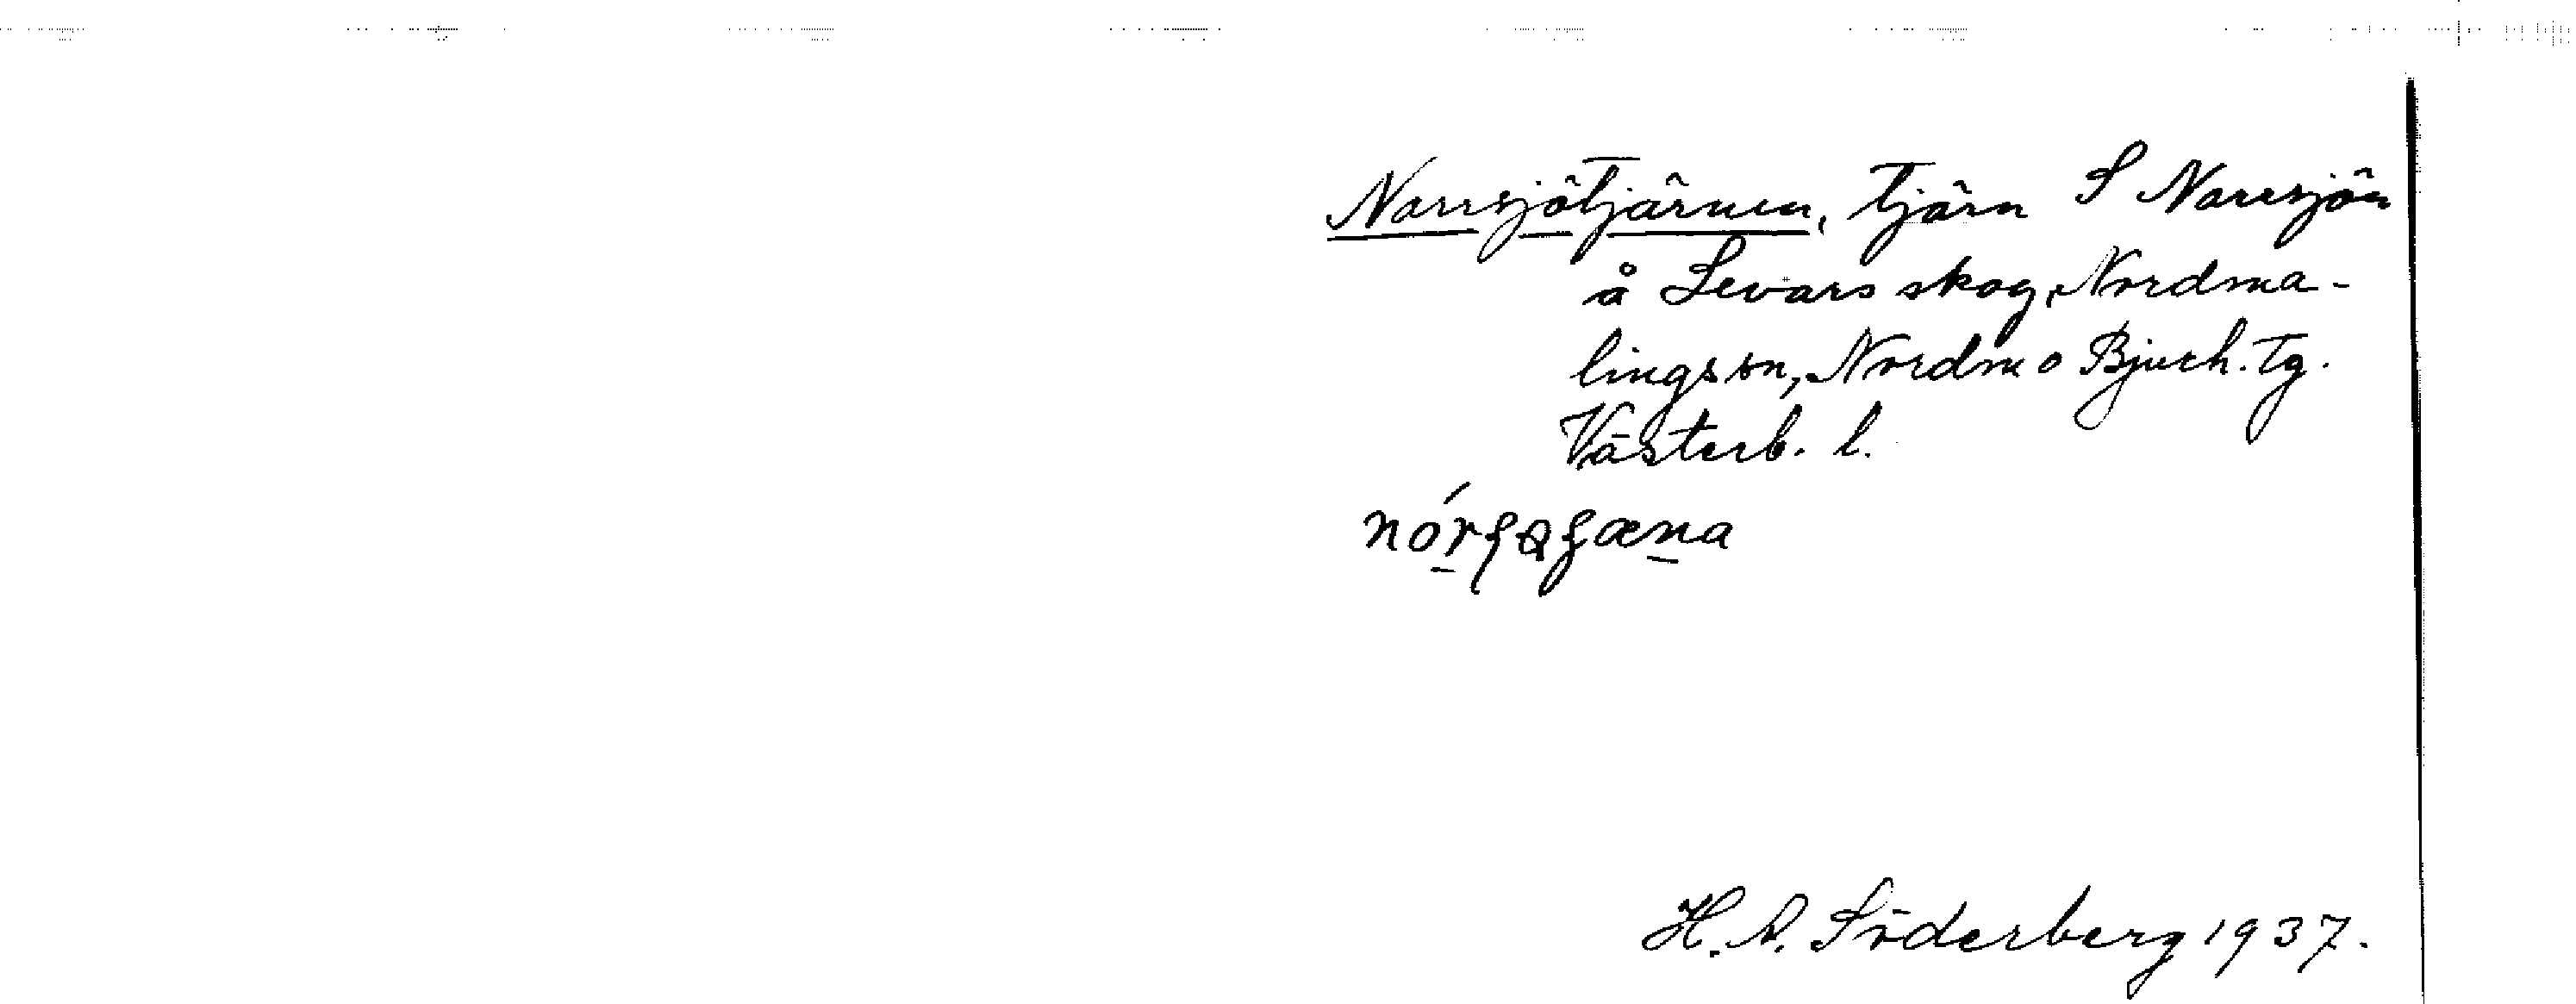 Narrsjötjärnen, tjärn S Narrsjön
å Levars skog, Nordma-
lings sn, Nordm o Bjurh. tg.
Västerb. l.
H. A. Söderberg 1937.